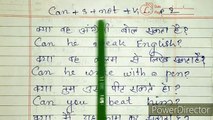 Can + S + not + V₁ + O + ?
क्या वह अंग्रेजी बोल सकता है?
Can he speak English?
क्या वह कलम से लिख सकता है?
Can he write with a pen?
क्या तुम उसे पीट सकते हो?
Can you beat him?
क्या
PowerDirector